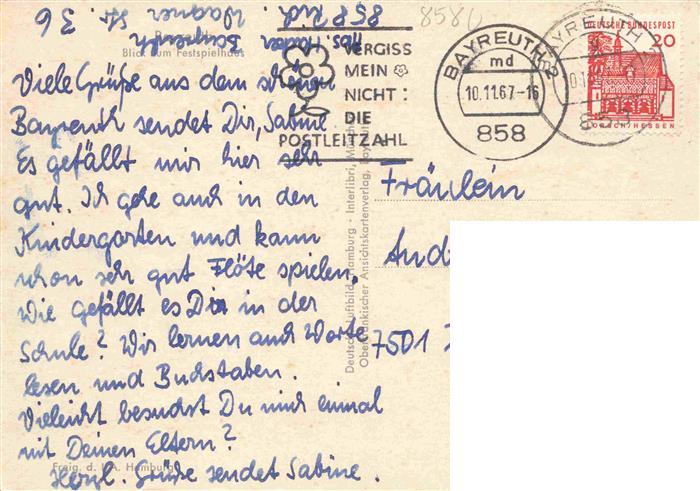 Bayreuth
Blick zum Festspielhaus
Viele Grüße aus dem schönen
Bayreuth sendet Dir, Sabine
Es gefällt mir hier sehr
gut. Ich gehe auch in den
Kindergarten und kann
schon sehr gut Flöte spielen.
Wie gefällt es Dir in der
Schule? Wir lernen auch Worte
lesen und Buchstaben.
Vieleicht besuchst Du mich einmal
mit Deinen Eltern?
Herzl. Grüße sendet Sabine.
Freig. d. L.A. Hamburg
Abs.
858 Bayreuth
Wagner Str. 36
8580
VERGISS
MEIN
NICHT:
DIE
POSTLEITZAHL
BAYREUTH 2
md
10.11.67.-16
858
BAYREUTH
DEUTSCHE BUNDESPOST
20
LORSCH/HESSEN
Deutsche Luftbild, Hamburg · Interlibri,
Oberfränkischer Ansichtskartenverlag,
Fräulein
And
7501